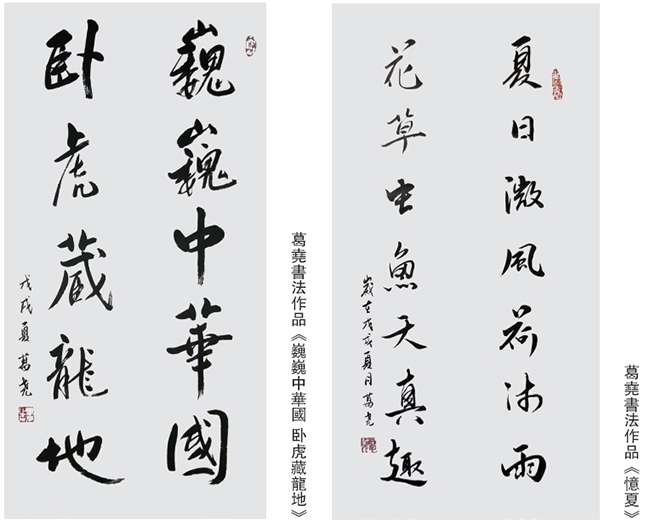 巍巍中華國
卧虎蔵龍地
戊戌夏 葛尧
葛堯書法作品《巍巍中華國 卧虎藏龍地》
夏日微風荷沐雨
花草虫魚天真趣
歲在戊戌夏月葛尧
葛堯書法作品《憶夏》